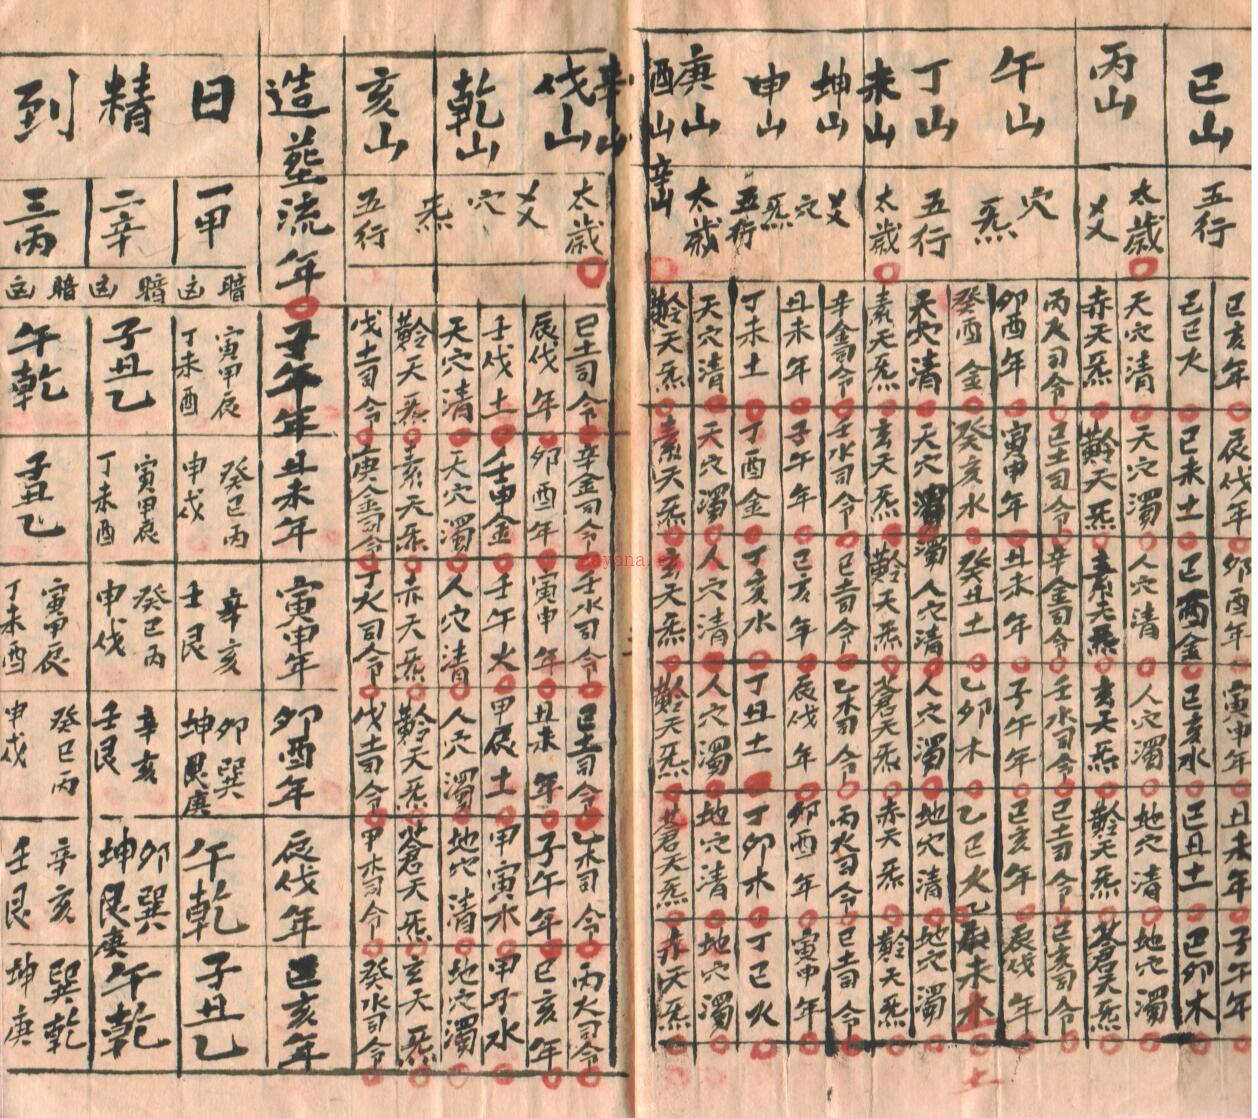 巳山
丙山
午山
丁山
未山
坤山
申山
庚山
酉山
辛山
五行
太歲
爻
穴
炁
五行
太歲
爻
穴
炁
五行
太歲
巳亥年 辰伐年 卯酉年 寅申年 丑未年 子午年
己巳火 己未土 己酉金 己亥水 己丑土 己卯木
天穴清 天穴濁 人穴清 人穴濁 地穴清 地穴濁
赤天炁 黅天炁 素天炁 玄天炁 黅天炁 蒼天炁
丙火司令 己土司令 辛金司令 壬水司令 己土司令 己亥司令
卯酉年 寅申年 丑未年 子午年 巳亥年 辰伐年
癸酉金 癸亥水 癸丑土 乙卯木 乙巳火 乙未木
天穴清 天穴濁 濁 人穴清 人穴濁 地穴清 地穴濁
素天炁 玄天炁 黅天炁 蒼天炁 赤天炁 黅天炁
辛金司令 壬水司令 己土司令 乙木司令 丙火司令 己土司令
丑未年 子午年 巳亥年 辰伐年 卯酉年 寅申年
丁未土 丁酉金 丁亥水 丁丑土 丁卯木 丁巳火
天穴清 天穴濁 人穴清 人穴濁 地穴清 地穴濁
黅天炁 素天炁 玄天炁 黅天炁 蒼天炁 赤天炁
土
辛山
伐山
乾山
亥山
太歲
爻
穴
炁
五行
己土司令 辛金司令 壬水司令 己土司令 乙木司令 丙火司令
辰伐年 卯酉年 寅申年 丑未年 子午年 巳亥年
壬伐土 壬申金 壬午火 甲辰土 甲寅水 甲子水
天穴清 天穴濁 人穴清 人穴濁 地穴清 地穴濁
黅天炁 素天炁 赤天炁 黅天炁 蒼天炁 玄天炁
戊土司令 庚金司令 丁火司令 戊土司令 甲木司令 癸水司令
造塟流年
子午年 丑未年 寅申年 卯酉年 辰伐年 巳亥年
日精到
一甲
暗
寅甲辰 丁未酉
癸巳丙 申戌
辛亥 壬艮
卯巽 坤艮庚
午乾
子丑乙
二辛
暗
子丑乙
寅甲辰 丁未酉
癸巳丙 申伐
辛亥 壬艮
卯巽 坤艮庚
午乾
三丙
暗
午乾
子丑乙
寅甲辰 丁未酉
癸巳丙 申戌
辛亥 壬艮
巽乾 坤庚